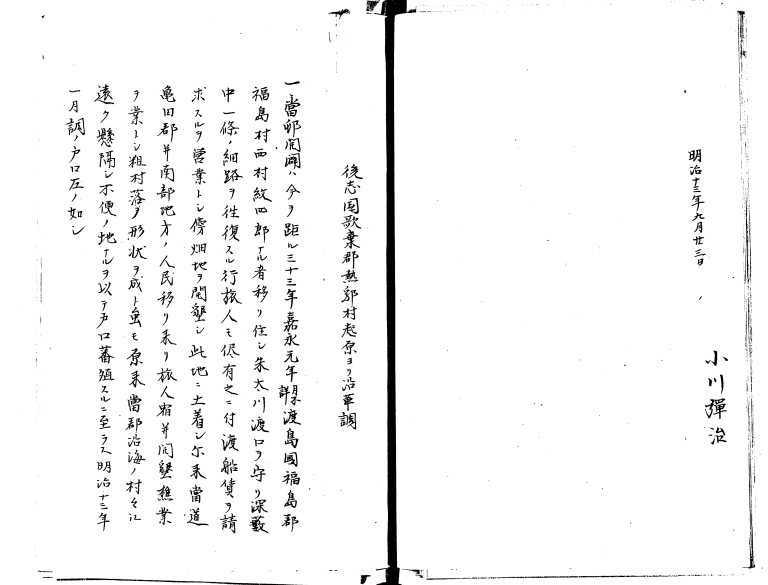 明治十三年九月廿三日
小川彈治
後志国歌棄郡熱郛村起原ヨリ沿革調
一當邨開闢ハ今ヲ距ル三十三年嘉永元年月不詳渡島國福島郡
福島村西村紋四郎ナル者移リ住シ朱太川渡口ヲ守リ深藪
中一條ノ細路ヲ往復スル行旅人モ侭有之ニ付渡船賃ヲ請
求スルヲ営業トシ傍畑地ヲ開墾シ此地ニ土着シ尓来當道
亀田郡并南部地方ノ人民移リ来リ旅人宿并開墾樵業
ヲ業トシ粗村落ヲ形状ヲ成ト虽モ原来當郡沿海ノ村々ニ
遠ク懸隔シ不便ノ地ナルヲ以テ戸口蕃殖スルニ至ラス明治十三年
一月調ノ戸口左ノ如シ